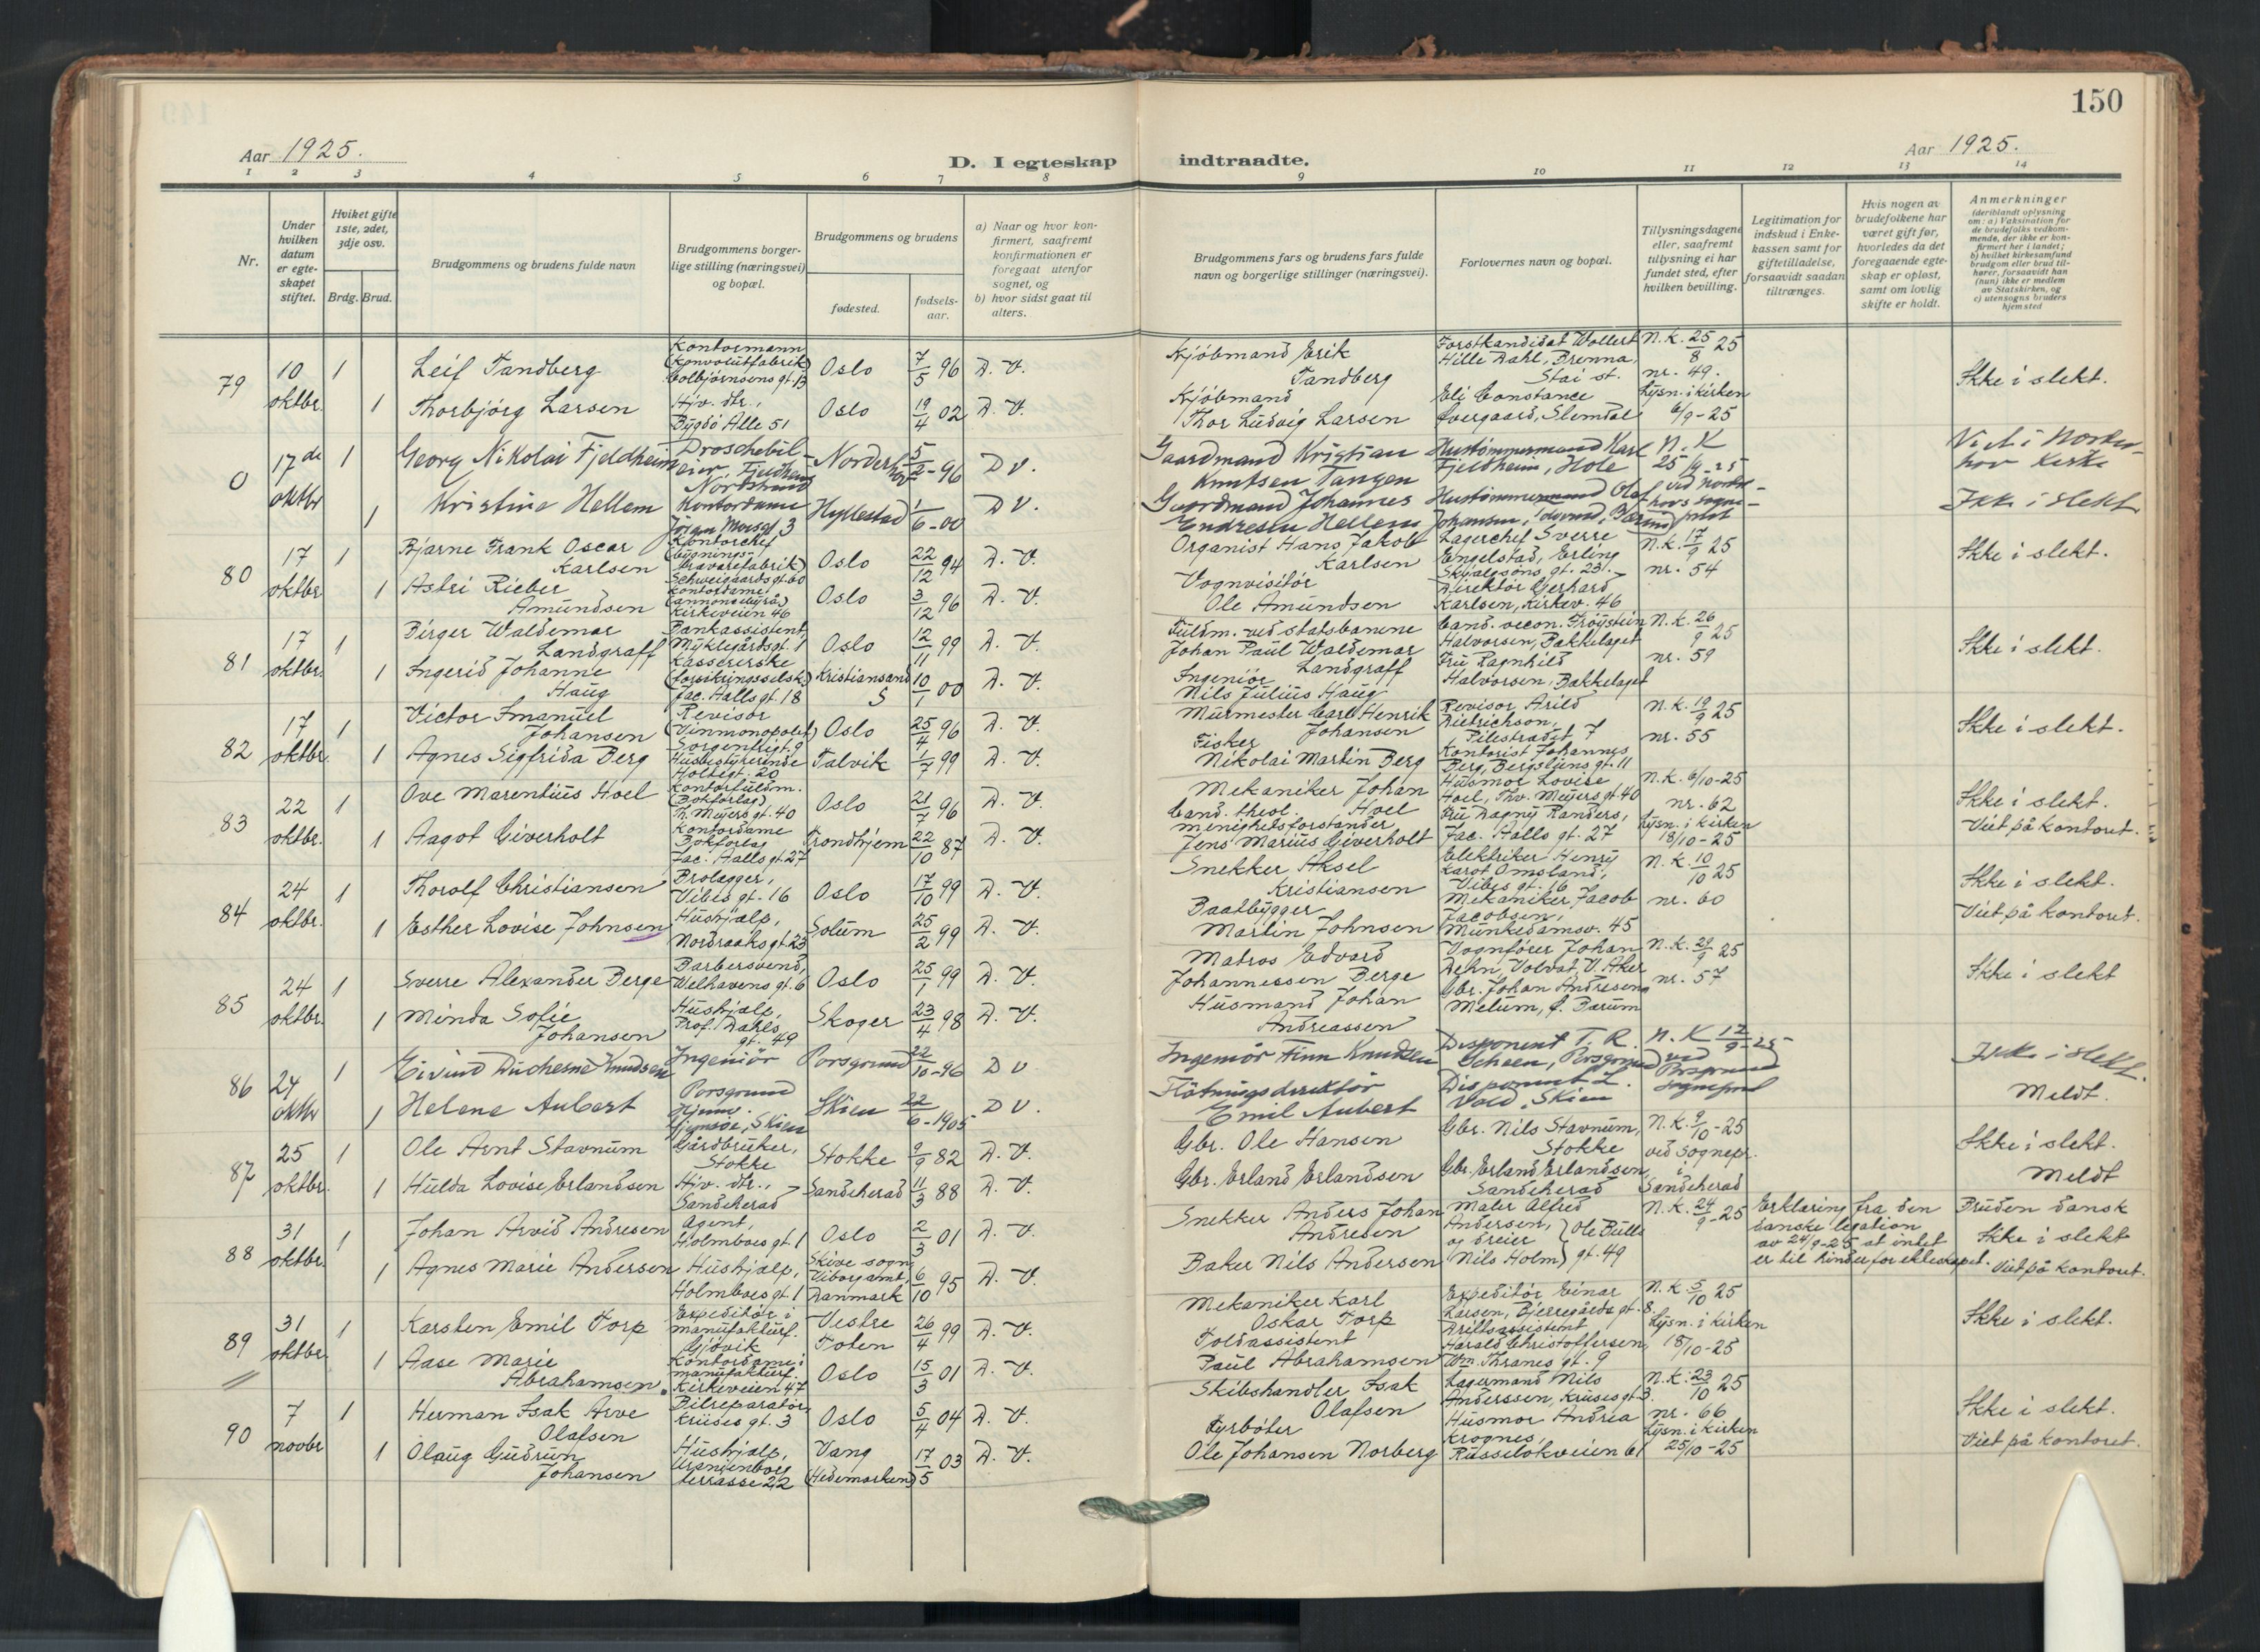 150
Aar 1925.
D. I egteskap indtraadte.
Aar 1925.
1 2 3 4 5 6 7 8 9 10 11 12 13 14
Nr.
Under hvilken datum er egteskapet stiftet.
Hviket gifte 1ste, 2det, 3dje osv.
Brdg. Brud.
Brudgommens og brudens fulde navn
Brudgommens borgerlige stilling (næringsvei) og bopæl.
Brudgommens og brudens
fødested.
fødsels-aar.
a) Naar og hvor konfirmert, saafremt konfirmationen er foregaat utenfor sognet, og
b) hvor sidst gaat til alters.
Brudgommens fars og brudens fars fulde navn og borgerlige stillinger (næringsvei).
Forlovernes navn og bopæl.
Tillysningsdagene eller, saafremt tillysning ei har fundet sted, efter hvilken bevilling.
Legitimation for indskud i Enkekassen samt for giftetilladelse, forsaavidt saadan tiltrænges.
Hvis nogen av brudefolkene har været gift før, hvorledes da det foregaaende egteskap er opløst, samt om lovlig skifte er holdt.
Anmerkninger
(deriblandt oplysning om: a) Vaksination for de brudefolks vedkommende, der ikke er konfirmert her i landet; b) hvilket kirkesamfund brudgom eller brud tilhører, forsaavidt han (hun) ikke er medlem av Statskirken, og c) utensogns bruders hjemsted
79 10 oktbr. 1 Leif Tandberg Kontormann (Konvolutfabrik) Colbjørnsens gt. 13 Oslo 7/5 96 D. V. Kjöbmand Erik Tandberg Forstkandidat Wollert Hille Dahl, Brenna, Stai st. N.k. 25/8 25 nr. 49. Ikke i slekt.
1 Thorbjörg Larsen Hjv. dtr., Bygdö Alle 51 Oslo 19/4 02 D. V. Kjöbmand Thor Ludvig Larsen Eli Constance Overgaard, Slemdal Lysn. i kirken 6/9-25
0 17de oktbr 1 Georg Nikolai Fjeldheim Droschebileier, Fjeldheim Nordstrand Norderhov 5/2-96 D V. Gaardmand Kristian Knutsen Tangen Hustömmermand Karl Fjeldheim, Hole N.K 25/9-25 Viet i Norderhov Kirke
1 Kristine Hellem Kontordame Jörgen Moesgt. 3 Hyllestad 1/6-00 D V. Gaardmand Johannes Endresen Hellem Hustömmermand Olaf Johansen, Bærum ved Norderhovs Sogneprest Ikke i slekt
80 17 oktbr 1 Bjarne Frank Oscar Karlsen Kontorchef (bygningsvarefabrik) Schweigaards gt. 60 Oslo 22/12 94 D. V. Organist Hans Jakob Karlsen Lagerchef Sverre Engelstad, Erling Skjalgsöns gt. 23. N.k. 17/9 25 nr. 54 Ikke i slekt.
1 Astri Rieber Amundsen Kontordame (annoncebyrå) Kirkeveien 46 Oslo 3/12 96 D. V. Vognvisitör Ole Amundsen Direktör Gerhard Karlsen, Kirkev. 46
81 17 oktbr. 1 Birger Waldemar Landgraff Bankassistent, Myklegårdsgt. 1 Oslo 12/11 99 D. V. Fuldm. ved statsbanene Johan Paul Waldemar Landgraff Cand. oecon. Fröystein Halvorsen, Bakkelaget N.k. 26/9 25 nr. 59 Ikke i slekt.
1 Ingerid Johanne Haug Kassererske (forsikringsselsk.) Jac. Aalls gt. 18 Kristiansand S 10/1 00 D. V. Ingeniör Nils Julius Haug Fru Ragnhild Halvorsen, Bakkelaget
82 17 oktbr. 1 Victor Imanuel Johansen Revisor (Vinmonopolet) Sorgenfrigt. 9 Oslo 25/4 96 D. V. Murmester Carl Henrik Johansen Revisor Arild Dietrichson, Pilestrædet 7 N.k. 19/9 25 nr. 55 Ikke i slekt.
1 Agnes Sigfrida Berg Husbestyrerinde Holtegt. 20 Talvik 1/7 99 D. V. Fisker Nikolai Martin Berg Kontorist Johannes Berg, Bergsliens gt. 11
83 22 oktbr. 1 Ove Marentius Hoel Kontorfuldm. (Bokforlag) Th. Meyers gt. 40 Oslo 21/7 96 D. V. Mekaniker Johan Hoel Husmor Lovise Hoel, Thv. Meyers gt. 40 N.k. 6/10-25 nr. 62 Ikke i slekt.
1 Aagot Giverholt Kontordame Bokforlag Jac. Aalls gt. 27 Trondhjem 22/10 87 D. V. Cand. theol. menighetsforstander Jens Marius Giverholt Fru Dagny Randers, Jac. Aalls gt. 27 Lysn. i kirken 18/10-25 Viet på kontoret.
84 24 oktbr. 1 Thorolf Christiansen Brolegger, Vibes gt. 16 Oslo 17/10 99 D. V. Snekker Aksel Kristiansen Elektriker Henry Karot Omsland, Vibes gt. 16 N.k. 10/10 25 nr. 60 Ikke i slekt.
1 Esther Lovise Johnsen Hushjælp, Nordraaks gt. 23 Solum 25/2 99 D. V. Baatbygger Martin Johnsen Mekaniker Jacob Jacobsen, Munkedamsv. 45 Viet på kontoret.
85 24 oktbr. 1 Sverre Alexander Berge Barbersvend, Welhavens gt. 6 Oslo 25/1 99 D. V. Matros Edvard Johannessen Berge Vognförer Johan Dehn, Volvat, V. Aker N.k. 29/9 25 nr. 57 Ikke i slekt
1 Minda Sofie Johansen Hushjælp, Prof. Dahls gt. 49 Skoger 23/4 98 D. V. Husmand Johan Andreassen Gbr. Johan Andresen Melum, Ö. Bærum
86 24 oktbr 1 Eivind Duchesne Knudsen Ingeniör Porsgrund Porsgrund 22/10-96 D V Ingeniör Finn Knudsen Disponent T. R. Scheen, Porsgrund N.K 12/9-25 ved Porsgrund Sogneprest Ikke i slekt.
1 Helene Aubert Hjemv. Gjemsöe, Skien Skien 22/6-1905 D V. Flötningsdirektör Emil Aubert Disponent L. Vold, Skien Meldt.
87 25 oktbr. 1 Ole Arnt Stavnum Gårdbruker, Stokke Stokke 9/9 82 D. V. Gbr. Ole Hansen Gbr. Nils Stavnum, Stokke N.k. 9/10-25 ved Sognepr. i Sandeherad Ikke i slekt.
1 Hulda Lovise Erlandsen Hjv. dtr., Sandeherad Sandeherad 11/3 88 D. V. Gbr. Erland Erlandsen Gbr. Erland Erlandsen, Sandeherad Meldt
88 31 oktbr. 1 Johan Arvid Andresen Agent, Holmboes gt. 1 Oslo 2/3 01 D. V. Snekker Anders Johan Andresen Maler Alfred Andersen, og dreier Nils Holm) Ole Bulls gt. 49 N.k. 24/9-25 Erklæring fra den danske legation av 24/9-25 at intet er til hinder for ekteskapet. Bruden dansk Ikke i slekt
1 Agnes Marie Andersen Hushjælp, Holmboes gt. 1 Skive sogn, Viborg amt, Danmark 6/10 95 D. V. Baker Nils Andersen Viet på kontoret.
89 31 oktbr 1 Karsten Emil Torp Expeditör i manufakturf. Gjövik Vestre Toten 26/4 99 D. V. Mekaniker Karl Oskar Torp Expeditör Einar Larsen, Bjerregårds gt. 8. N.k. 5/10 25 Ikke i slekt.
1 Aase Marie Abrahamsen. Kontordame i manufakturf. Kirkeveien 47 Oslo 15/3 01 D. V. Toldassistent Paul Abrahamsen Driftsassistent Harald Christoffersen, Wm. Thranes gt. 9 Lysn. i kirken 18/10-25
90 7 novbr 1 Herman Isak Arve Olafsen Bilreparatör, Kruses gt. 3 Oslo 5/4 04 D. V. Skibshandler Isak Olafsen Lagermand Nils Anderssen, Kruses gt. 3. N.k. 23/10 25 nr. 66 Ikke i slekt.
1 Olaug Gudrun Johansen Hushjælp, Uranienborg terrasse 22 Vang (Hedemarken) 17/5 03 D. V. Fyrböter Ole Johansen Norberg Husmor Andrea Krognes, Russelökveien 61 Lysn. i kirken 25/10-25 Viet på kontoret.